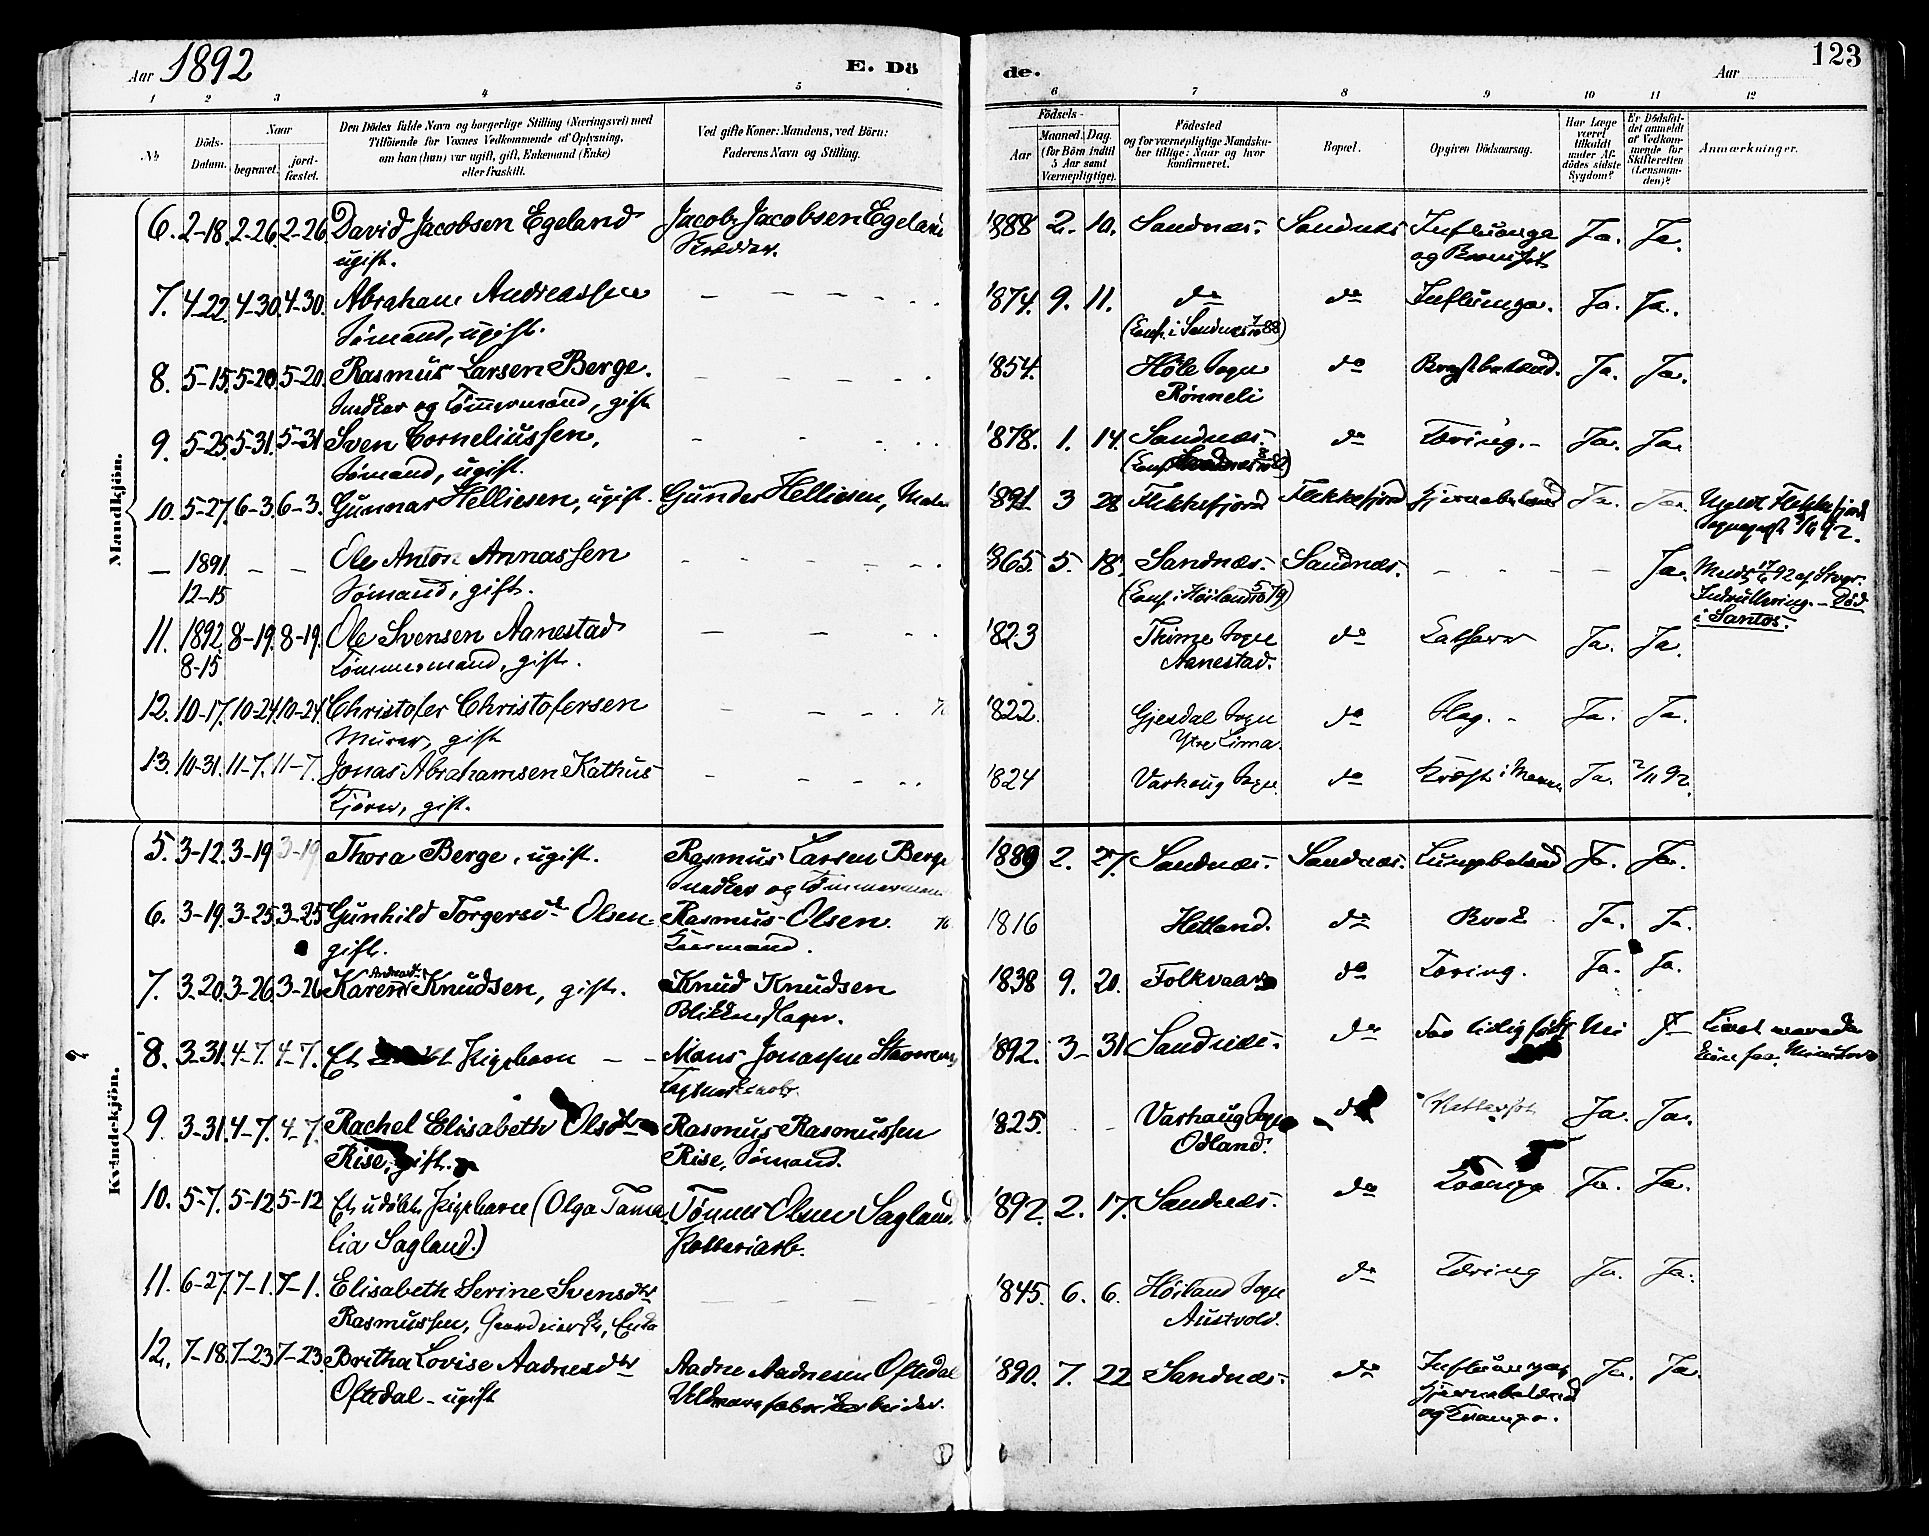 Aar 1892 E. Dö de. Aar 123
1 2 3 4 5 6 7 8 9 10 11 12
No Döds-Datum. Naar begravet. jordfæstet. Den Dödes fulde Navn og borgerlige Stilling (Næringsvei) med Tilföiende for Voxnes Vedkommende af Oplysning, om han (hun) var ugift, gift, Enkemand (Enke) eller fraskilt. Ved gifte Koner: Mandens, ved Börn: Faderens Navn og Stilling. Födsels- Aar Maaned. Dag. (for Börn indtil 5 Aar samt Værnepligtige). Födested og for værnepligtige Mandskaber tillige: Naar og hvor konfirmeret. Bopæl. Opgiven Dödsaarsag. Har Læge været tilkaldt under Afdödes sidste Sygdom? Er Dödsfaldet anmeldt af Vedkommende for Skifteretten (Lensmanden)? Anmærkninger.
Mandkjön.
6. 2-18. 2-26. 2-26. David Jacobsen Egeland Jacob Jacobsen Egeland 1888 2. 10. Sandnæs. Sandnæs Influenza Ja. Ja.
ugift. Skrædder. og Brems
7. 4-22. 4-30. 4-30. Abraham Andreassen - - - - 1874. 9. 11. do do Influenza. Ja. Ja.
Sømand, ugift. (Conf. i Sandnæs 7/10 88)
8. 5-15. 5-20. 5-20. Rasmus Larsen Berge. - - - - 1854. Høle Sogn do Brystbetænd. Ja. Ja.
Snedker og Tømmermand, gift Rönneli
9. 5-25. 5-31. 5-31 Sven Corneliussen, - - - 1878. 1. 14. Sandnæs. do Tæring. Ja. Ja.
Sømand, ugift.
10. 5-27. 6-3. 6-3. Gunnar Helliesen, ugift. Gunder Helliesen, Maler 1891 3 28 Flekkefjord Flekkefjord Hjernebetænd Ja. Ja. Meldt Flekkefjord
Sognepræst 92.
- 1891. - - Ole Anton Annassen - - - - 1865. 5. 18. Sandnæs. Sandnæs. - - - - Ja. Meldt 17/6 92 af Stavgr.
12-15 Sømand, gift. (Conf. i Høiland 5/10 79) Indrullering. - Död
i Santos.
11. 1892 8-19. 8-19. Ole Svensen Aanestad - - - 1823 Thime Sogn do Katharr Ja. Ja.
8-15 Tømmermand, gift. Aanestad.
12. 10-17. 10-24. 10-24. Christofer Christofersen - - - 1822. Gjesdal Sogn do Slag. - Ja. Ja.
Murer, gift Ytre Lima.
13. 10-31. 11-7. 11-7. Jonas Abrahamsen Kathus - - - 1824 Varhaug Sogn. do Kræft i Maven Ja. 2/11 92.
gift.
Kvindekjön.
5. 3-12. 3-19 3-19 Thora Berge, ugift. Rasmus Larsen Berge 1889 2. 27. Sandnæs. Sandnæs. Lungebetænd Ja. Ja.
Snedker og Tømmermand
6. 3-19. 3-25. 3-25 Gunhild Torgersdtr Olsen Rasmus Olsen. 1816 Hetland. do Brok Ja. Ja.
gift.
7. 3-20. 3-26. 3-26 Karen Knudsen, gift. Knud Knudsen 1838 9. 20. Folkvaard do Tæring. Ja. Ja.
Blikkenslager.
8. 3-31. 4-7. 4-7. Et Pigebarn - - Mons Jonassen 1892. 3- 31 Sandnæs. do For tidlig født Nei Ja
9. 3-31. 4-7. 4-7. Rachel Elisabeth Olsdtr Rasmus Rasmussen 1825. - - Varhaug Sogn do Ja. Ja.
Rise, gift. Rise, Sømand. Odland.
10. 5-7. 5-12 5-12 Et udøbt Pigebarn (Olga Tama- Tønnes Olsen Sagland. 1892. 2. 17. Sandnæs. do Krampe Ja. Ja.
lia Sagland.) Potteriarb.
11. 6-27. 7-1. 7-1. Elisabeth Serine Svensdtr - - - 1845. 6. 6. Høiland Sogn do Tæring Ja. Ja.
Rasmussen, Enke Austvold.
12. 7-18. 7-23. 7-23. Britha Lovise Aadnesdtr Aadne Aadnesen Oftedal 1890. 7. 22 Sandnæs. do Influenza, Ja. Ja.
Oftedal - ugift Uldvarefabrikarbeider. Hjernebetænd
og Krampe.